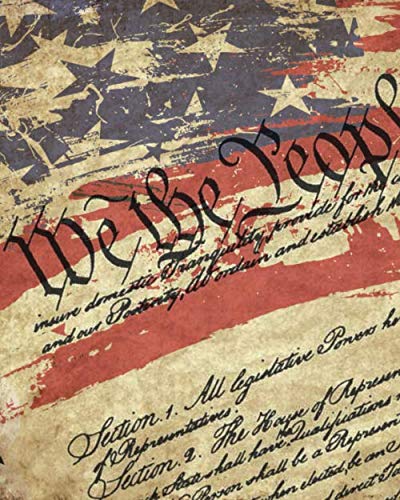 We the People
insure domestic Tranquility, provide for the c
and our Posterity, do ordain and establish th
Section. 1. All legislative Powers he
of Representatives.
Section. 2. The House of Represen
State shall have the Qualifications
Person shall be a Repres
when elected, be an
direct